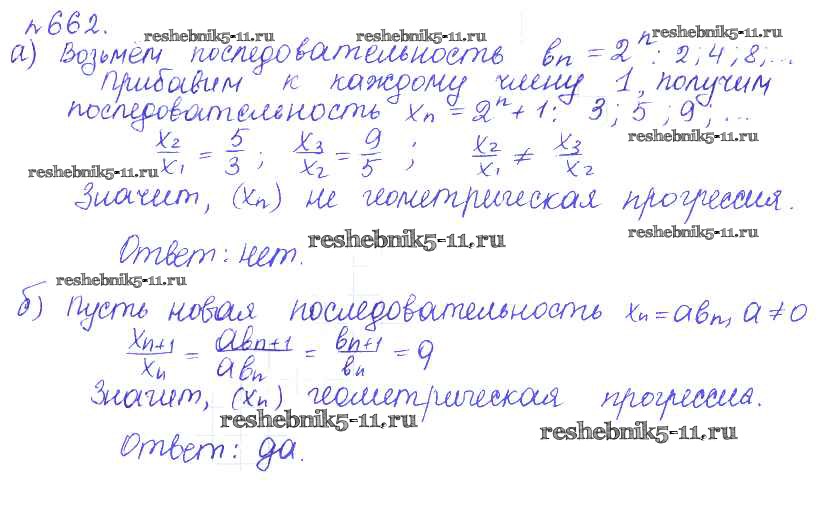 №662.
reshebnik5-11.ru reshebnik5-11.ru reshebnik5-11.ru
а) Возьмём последовательность bn = 2^n: 2; 4; 8; ...
Прибавим к каждому члену 1, получим
последовательность xn = 2^n + 1: 3; 5; 9; ...
reshebnik5-11.ru
x2/x1 = 5/3; x3/x2 = 9/5; x2/x1 ≠ x3/x2
reshebnik5-11.ru
Значит, (xn) не геометрическая прогрессия.
reshebnik5-11.ru
Ответ: нет. reshebnik5-11.ru
reshebnik5-11.ru
б) Пусть новая последовательность xn = abn, a ≠ 0
xn+1/xn = abn+1/abn = bn+1/bn = q
Значит, (xn) геометрическая прогрессия.
reshebnik5-11.ru reshebnik5-11.ru
Ответ: да.